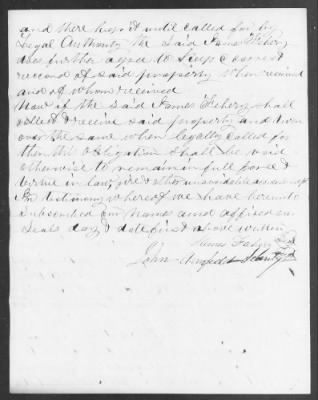 and there keep it until called for by
Legal Authority the said James Fehery
does further agree to keep a correct
record of said property when received
and of whom received
Now if the said James Fehery shall
collect & receive said property and turn
over the same when legally called for
then this obligation shall be void
otherwise to remain in full force &
virtue in law, fire & other unavoidable
In testimony whereof we have hereunto
Subscribed our names and affixed our
Seals day & date first above written
James
John